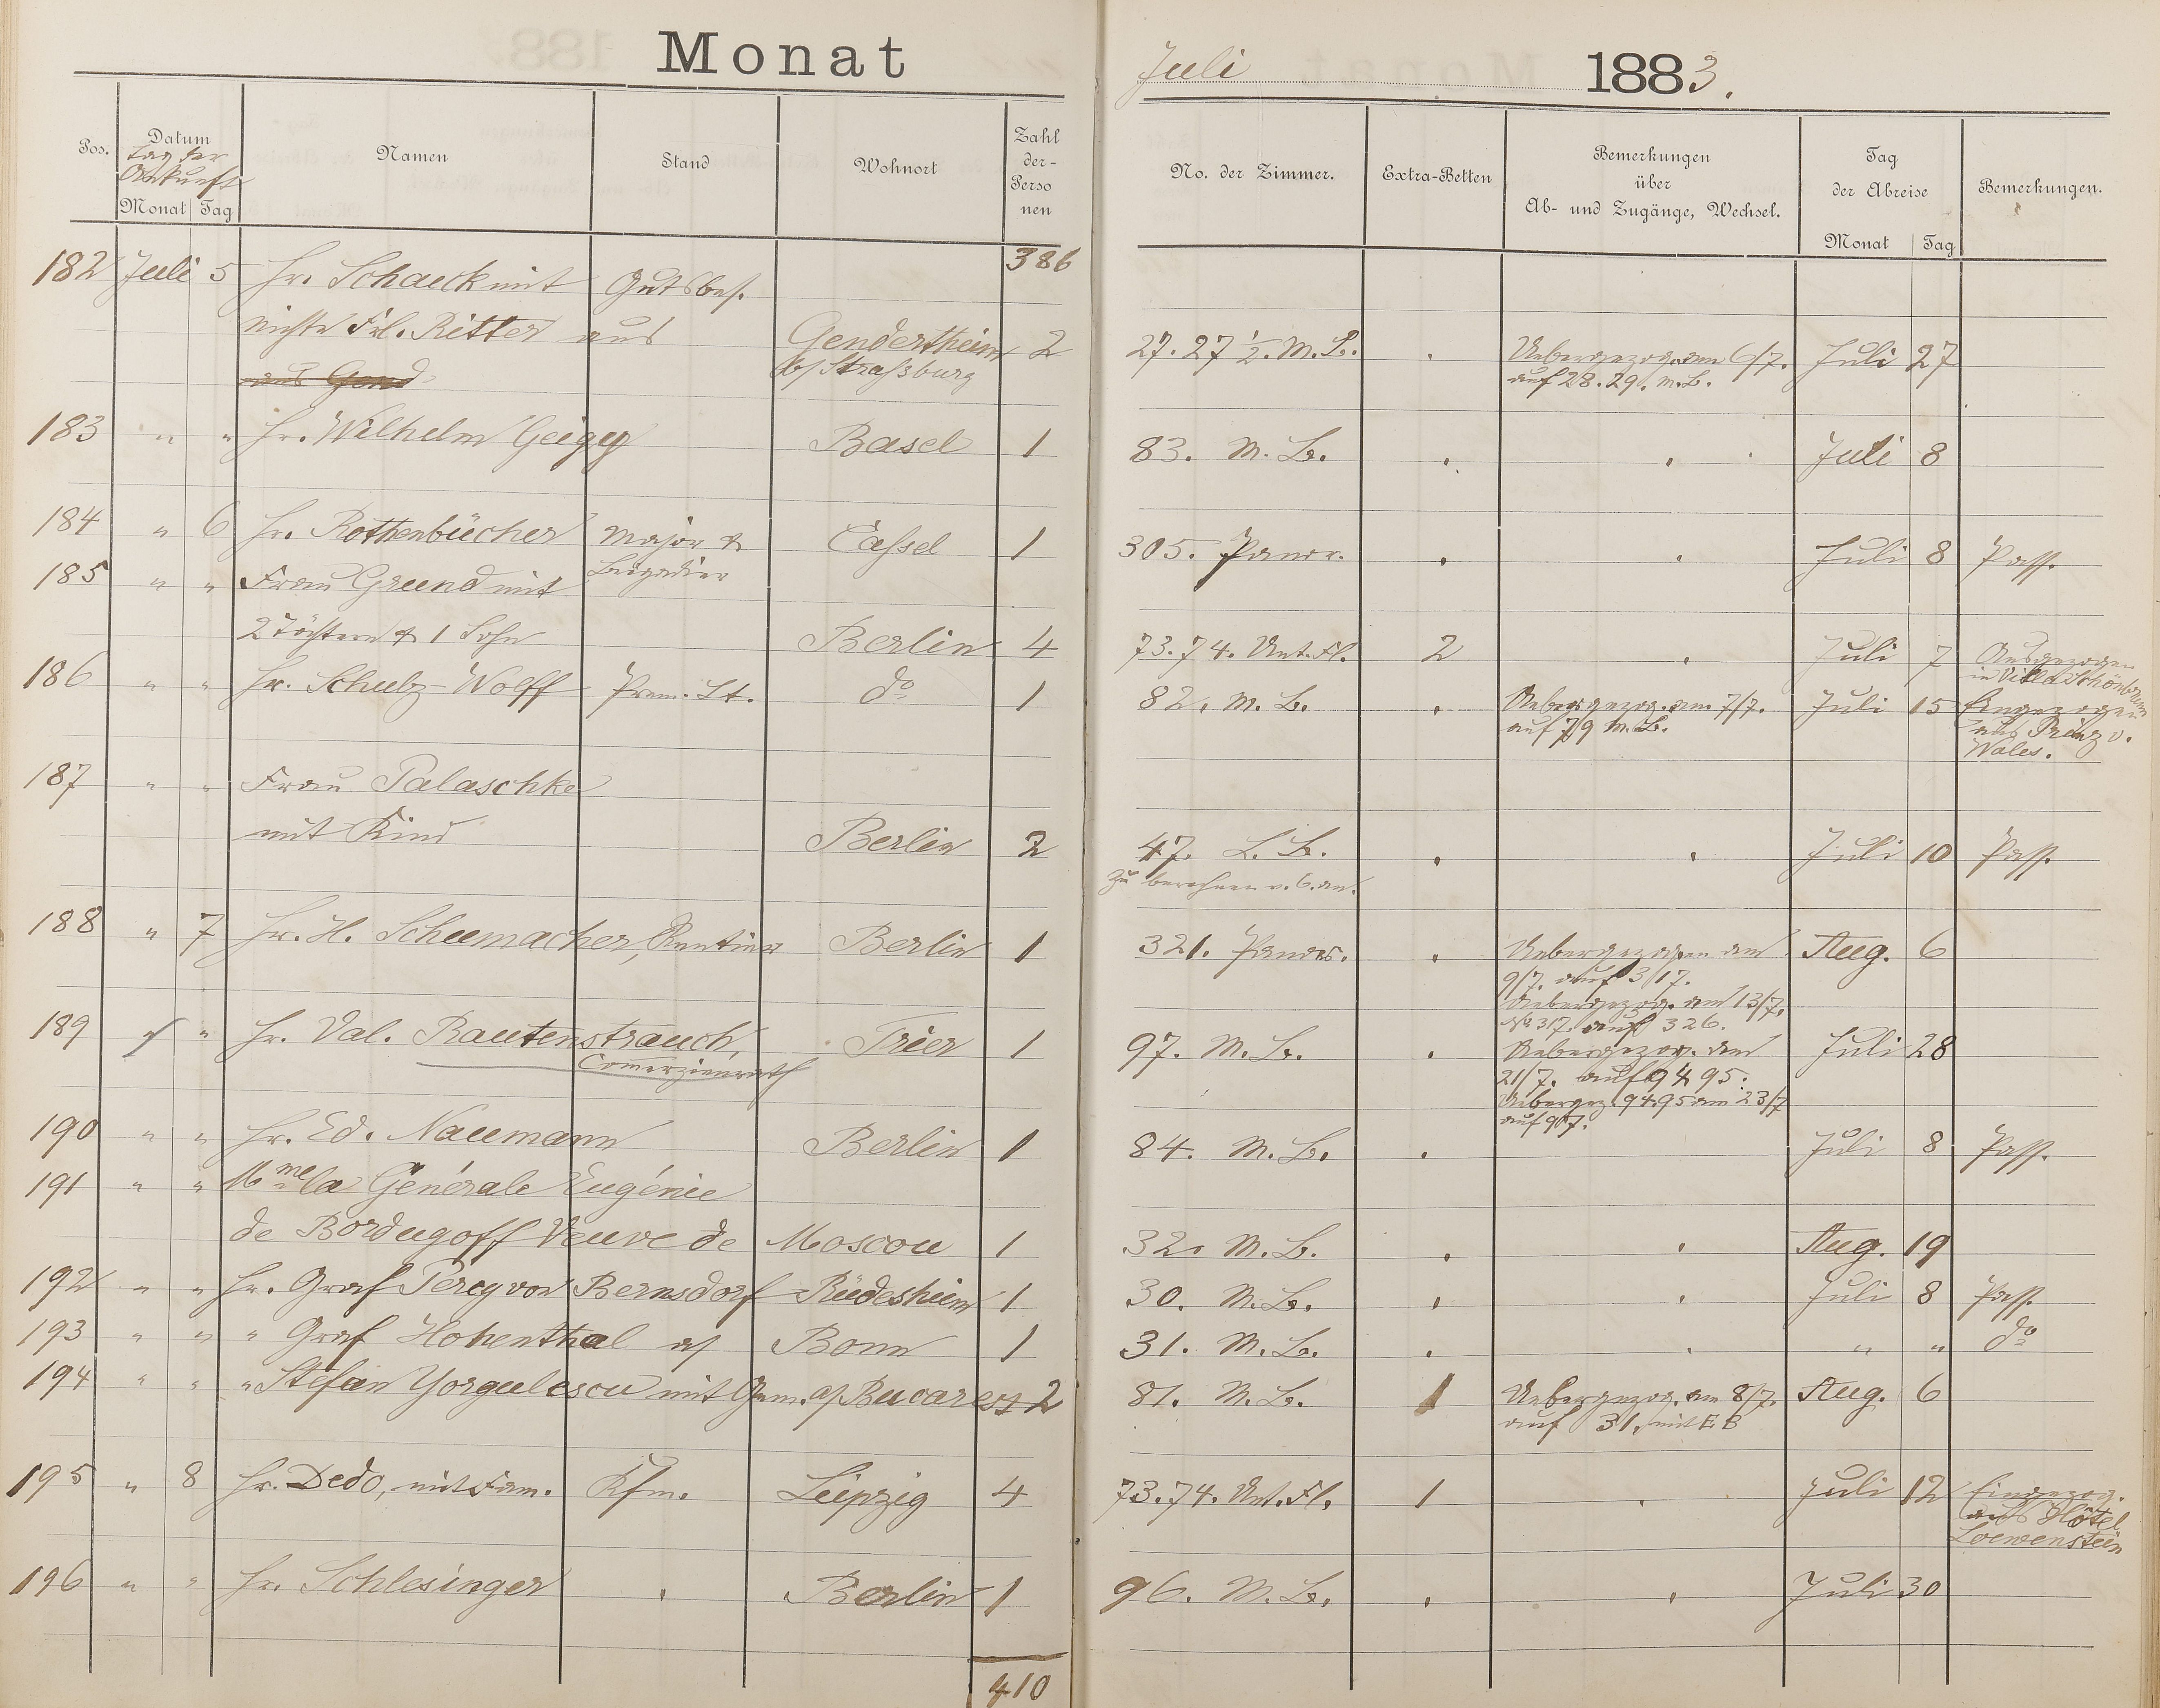 Monat
Juli 1883.
Pos.
Datum
Tag der
Ankunft
Monat Tag
Namen
Stand
Wohnort
Zahl
der-
Perso
nen
No. der Zimmer.
Extra-Betten
Bemerkungen
über
Ab- und Zugänge, Wechsel.
Tag
der Abreise
Monat Tag
Bemerkungen.
386
182 Juli 5 Hr. Schaeck mit Gutsbes.
Nichte Frl. Ritter aus Gendertheim 2 27. 27 1/2. M. B. Uebergezog. am 6/7. Juli 27
aus Gend b/ Straßburg auf 28. 29. M. B.
183 " " Hr. Wilhelm Geigy Basel 1 83. M. B. Juli 8
184 " 6 Hr. Rothenbücher Major & Cassel 1 305. Panor. Juli 8 Pass.
Brigadier
185 " " Frau Grund mit
2 Töchtern & 1 Sohn Berlin 4 73. 74. Unt. Fl. 2 Juli 7 Ausgezogen
in Villa Schönbrunn
186 " " Hr. Schulz-Wolff Prem. Lt. do 1 82. M. B. Uebergezog. am 7/7. Juli 15 Eingezogen
auf 79 M. B. aus Prinz v.
Wales.
187 " " Frau Palaschke
mit Kind Berlin 2 47. L. B. Juli 10 Pass.
Zu berechnen v. 6. an.
188 " 7 Hr. H. Schumacher, Rentier Berlin 1 321. Panor. Uebergezogen am Aug. 6
9/7. auf 317.
Uebergezog. am 13/7.
No 317. auf 326.
189 " " Hr. Val. Rautenstrauch, Trier 1 97. M. B. Uebergezog. am Juli 28
Commerzienrath 21/7. auf 94 95.
Uebergez. 94 95 am 23/7
auf 97.
190 " " Hr. Ed. Naumann Berlin 1 84. M. B. Juli 8 Pass.
191 " " Mme la Générale Eugénie
de Bordugoff Veuve de Moscou 1 32. M. B. Aug. 19
192 " " Hr. Graf Percy von Bernsdorf Rüdesheim 1 30. M. B. Juli 8 Pass.
193 " " " Graf Hohenthal a/ Bonn 1 31. M. B. " " do
194 " " " Stefan Yorgulescu mit Gem. a/ Bucarest 2 81. M. B. 1 Uebergezog. am 8/7. Aug. 6
auf 31. mit E. B
195 " 8 Hr. Dedo, mit Fam. Kfm. Leipzig 4 73. 74. Unt. Fl. 1 Juli 12 Eingezog.
aus Hôtel
Loewenstein
196 " " Hr. Schlesinger Berlin 1 96. M. B. Juli 30
410